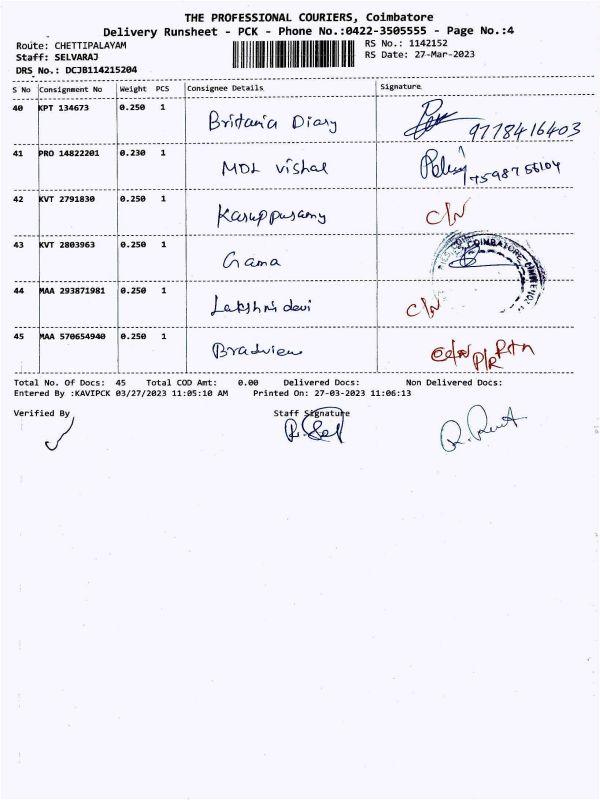 THE PROFESSIONAL COURIERS, Coimbatore
Delivery Runsheet - PCK - Phone No.:0422-3505555 - Page No.:4
Route: CHETTIPALAYAM RS No.: 1142152
Staff: SELVARAJ RS Date: 27-Mar-2023
DRS No.: DCJB114215204
S No Consignment No Weight PCS Consignee Details Signature
40 KPT 134673 0.250 1 Britania Diary 9778416403
41 PRO 14822201 0.230 1 MDL vishal
42 KVT 2791830 0.250 1 Karuppusamy C/N
43 KVT 2803963 0.250 1 Gama COIMBATORE
44 MAA 293871981 0.250 1 Lakshmi devi C/N
45 MAA 570654940 0.250 1 P/R Rtn
Total No. Of Docs: 45 Total COD Amt: 0.00 Delivered Docs: Non Delivered Docs:
Entered By :KAVIPCK 03/27/2023 11:05:10 AM Printed On: 27-03-2023 11:06:13
Verified By Staff Signature